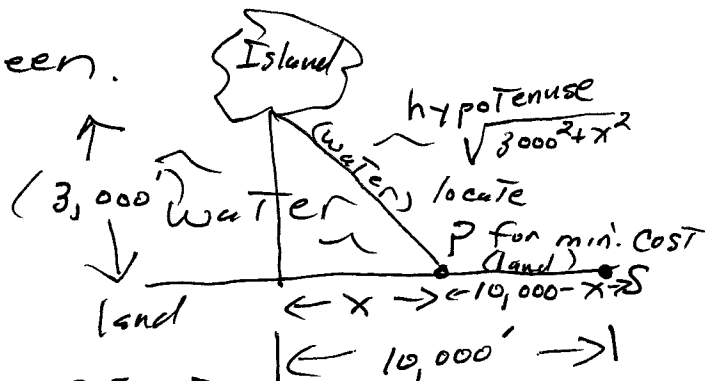 een.
Island
hypotenuse
√3000²+x²
(water) locate
(3,000') water
P for min. cost
(land)
land
← x → ←10,000-x→ S
|← 10,000' →|